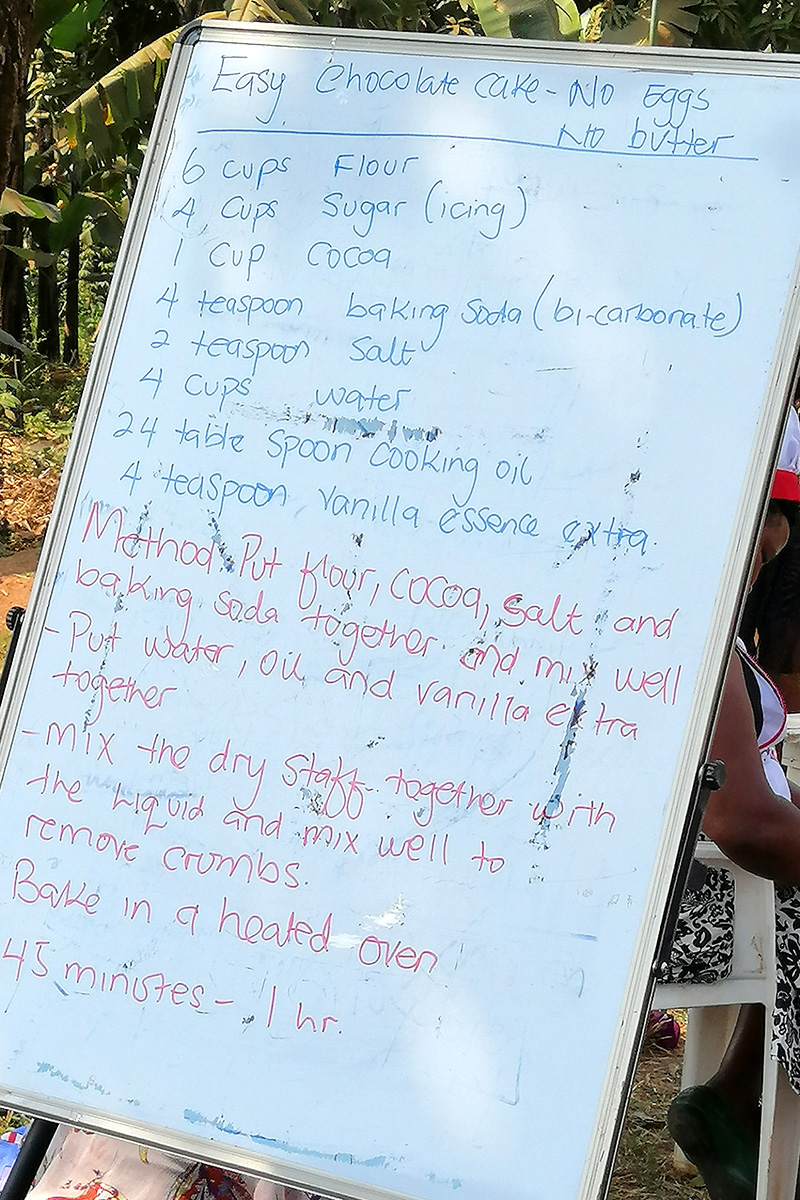 Easy Chocolate cake - No Eggs
No butter
6 cups Flour
4 cups Sugar (icing)
1 cup cocoa
4 teaspoon baking soda (bi-carbonate)
2 teaspoon Salt
4 cups water
24 table spoon cooking oil
4 teaspoon vanilla essence extra.
Method. Put flour, cocoa, salt and
baking soda together and mix well
- Put water, oil and vanilla extra
together
- mix the dry staff together with
the Liquid and mix well to
remove crumbs.
Bake in a heated oven
45 minutes - 1 hr.